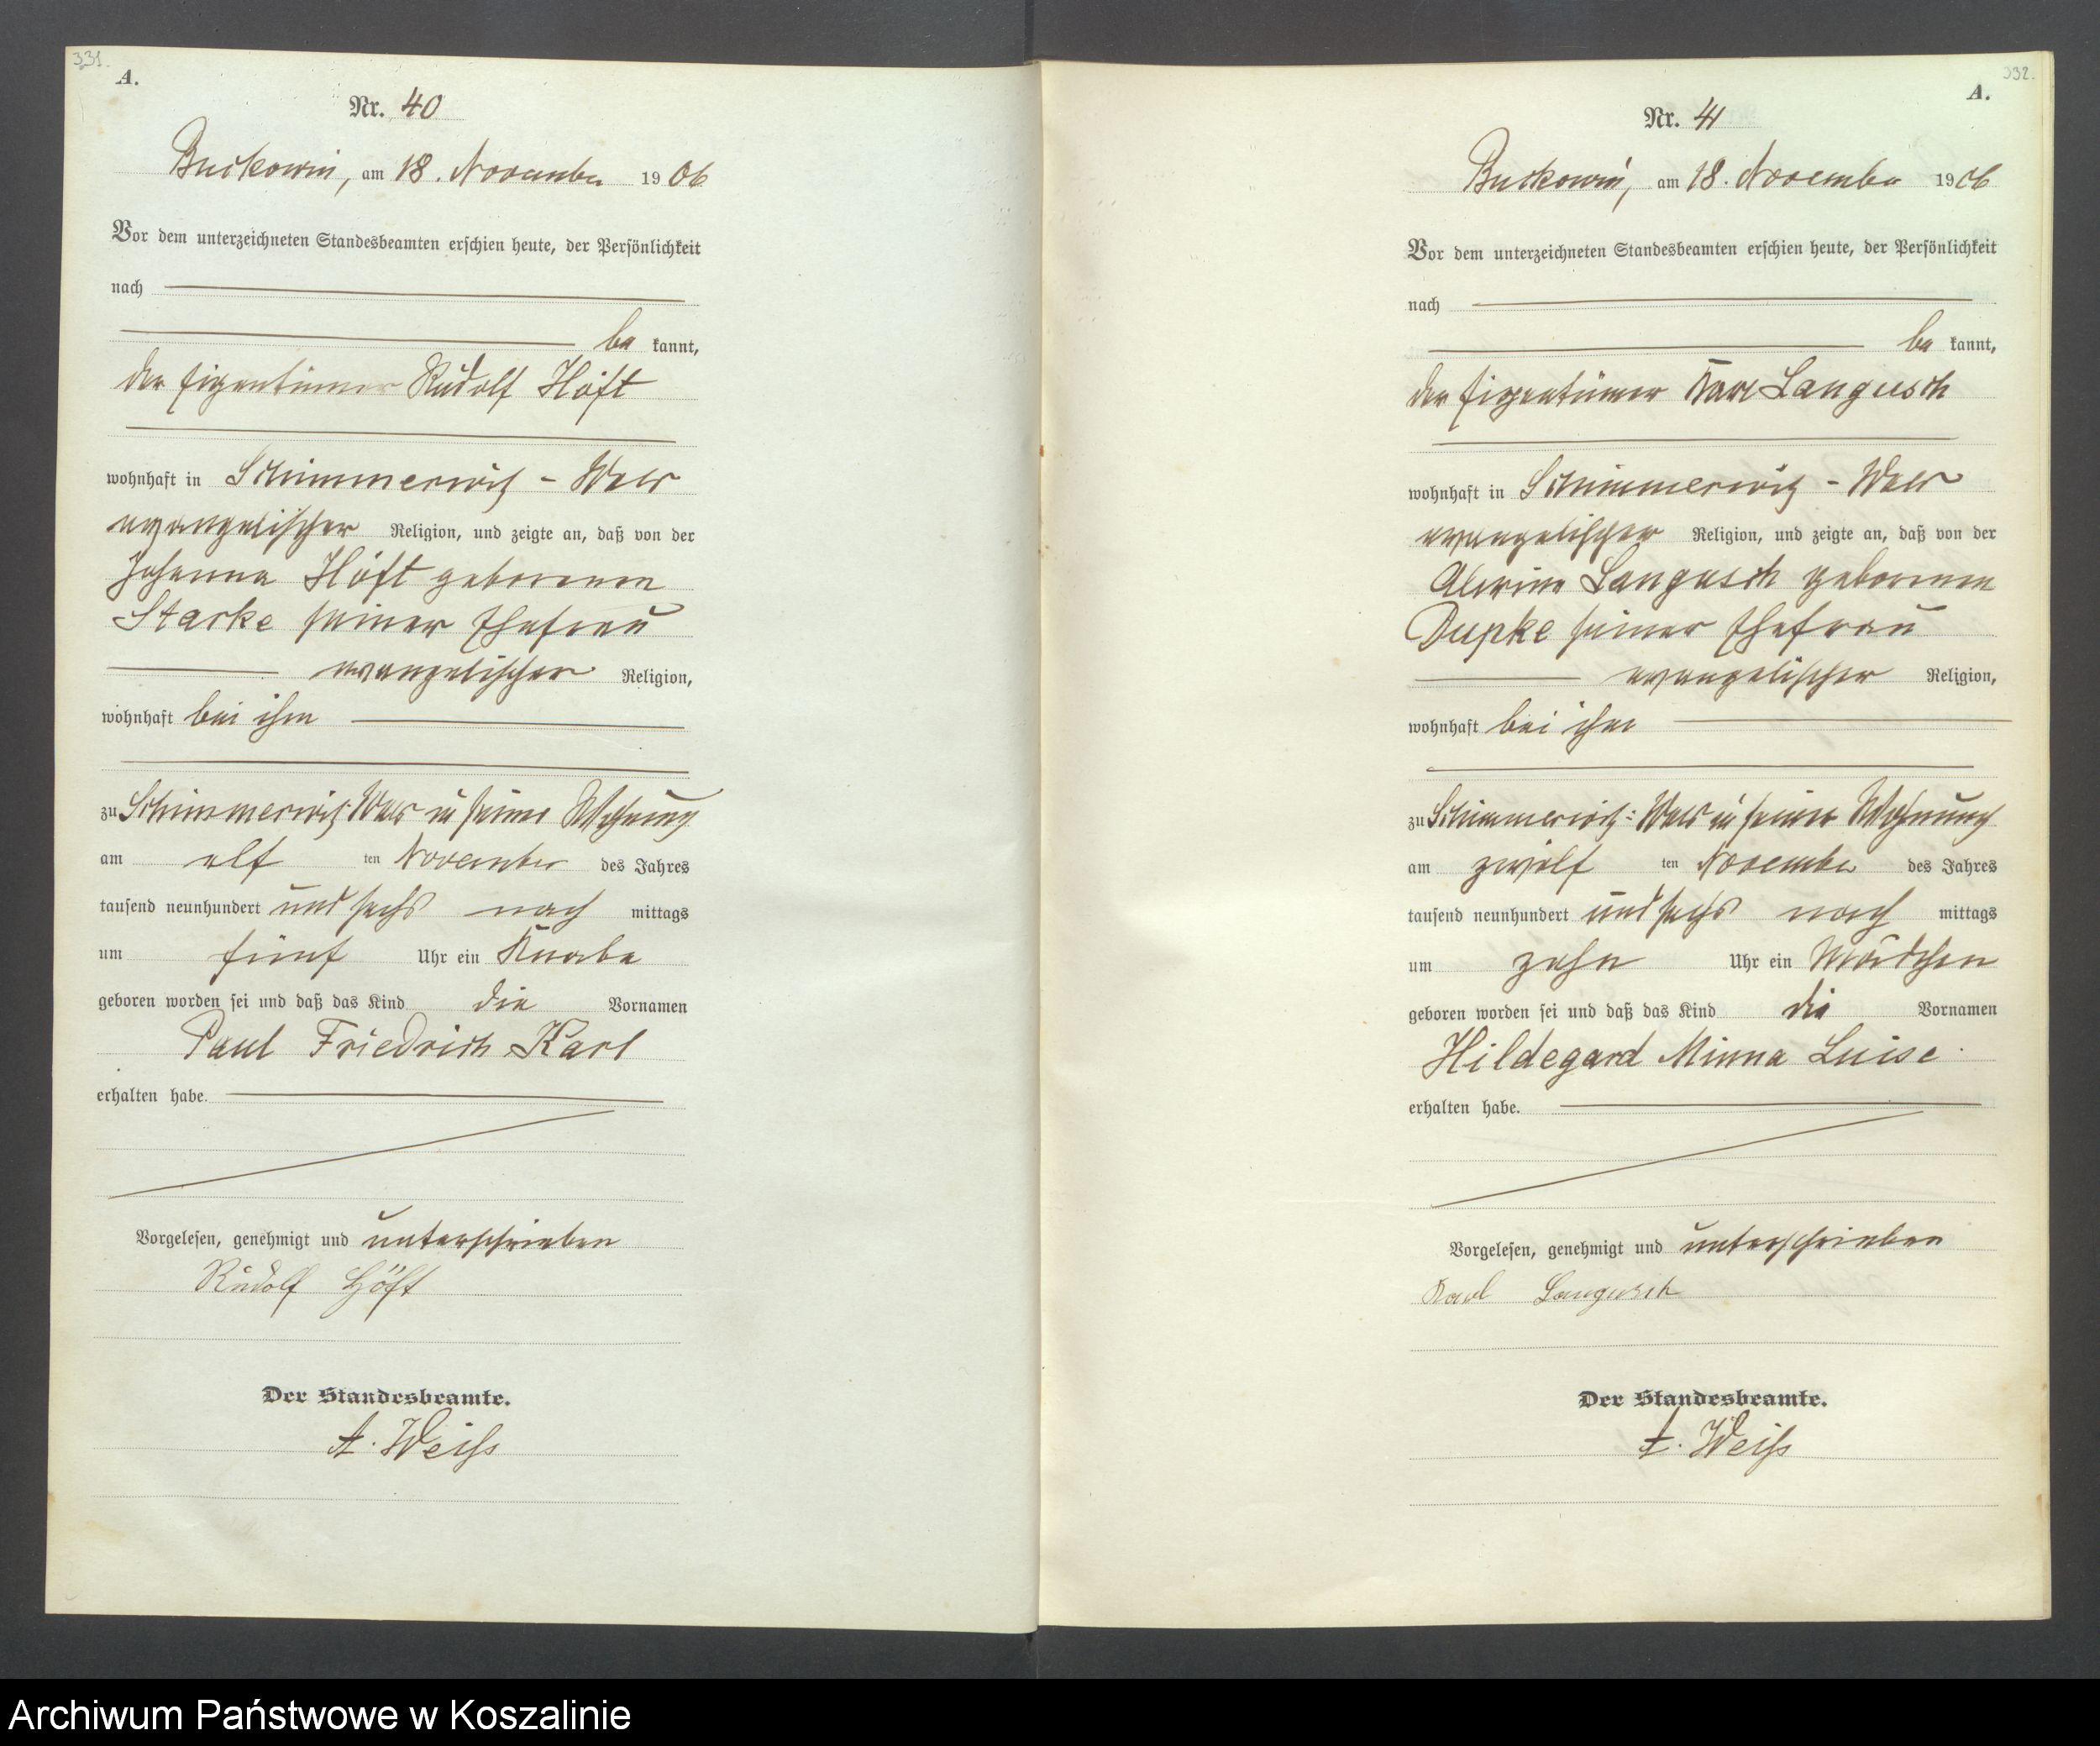 331.
A.
Nr. 40
Buckowin, am 18. November 1906
Vor dem unterzeichneten Standesbeamten erschien heute, der Persönlichkeit
nach
be kannt,
der Eigentümer Rudolf Höft
wohnhaft in Schimmerwitz - Wald
evangelischer Religion, und zeigte an, daß von der
Johanna Höft geborenen
Starke seiner Ehefrau
evangelischer Religion,
wohnhaft bei ihm
zu Schimmerwitz-Wald in seiner Wohnung
am elf ten November des Jahres
tausend neunhundert und sechs nach mittags
um fünf Uhr ein Knabe
geboren worden sei und daß das Kind die Vornamen
Paul Friedrich Karl
erhalten habe.
Vorgelesen, genehmigt und unterschrieben
Rudolf Höft
Der Standesbeamte.
A. Weiß
332.
A.
Nr. 41
Buckowin, am 18. November 1906
Vor dem unterzeichneten Standesbeamten erschien heute, der Persönlichkeit
nach
be kannt,
der Eigentümer Karl Langusch
wohnhaft in Schimmerwitz - Wald
evangelischer Religion, und zeigte an, daß von der
Langusch geborenen
Dupke seiner Ehefrau
evangelischer Religion,
wohnhaft bei ihm
zu Schimmerwitz-Wald in seiner Wohnung
am zwölf ten November des Jahres
tausend neunhundert und sechs nach mittags
um zehn Uhr ein Mädchen
geboren worden sei und daß das Kind die Vornamen
Hildegard Minna Luise
erhalten habe.
Vorgelesen, genehmigt und unterschrieben
Karl Langusch
Der Standesbeamte.
A. Weiß
Archiwum Państwowe w Koszalinie